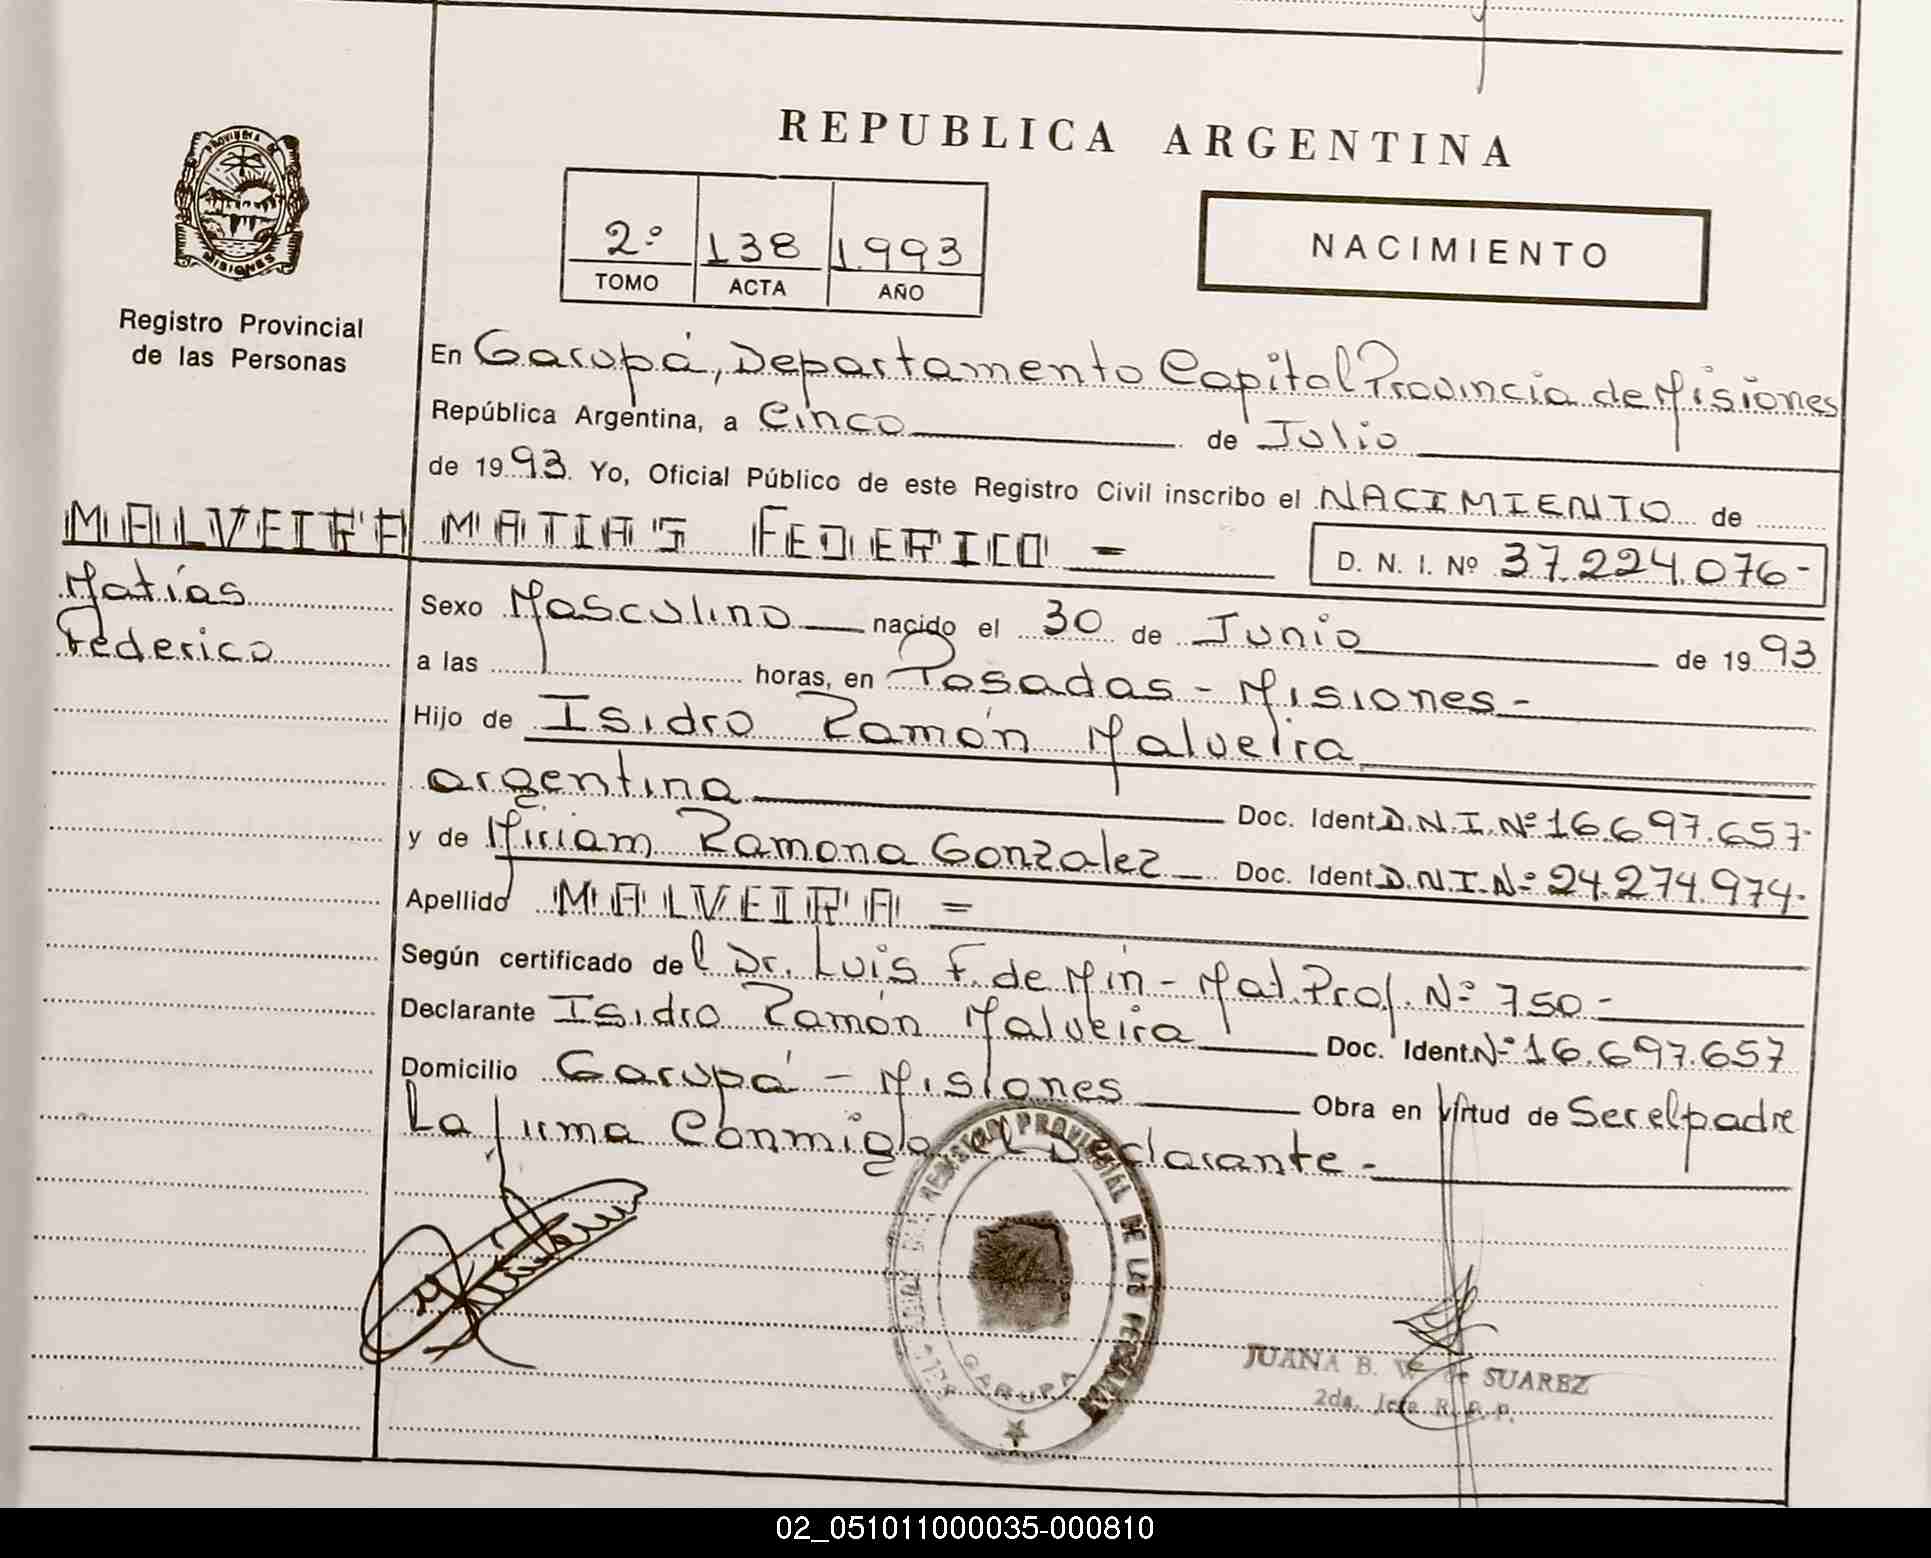 REPUBLICA ARGENTINA
PROVINCIA DE
MISIONES
Registro Provincial
de las Personas
2º 138 1993
TOMO ACTA AÑO
NACIMIENTO
En Garupá, Departamento Capital Provincia de Misiones
República Argentina, a Cinco de Julio
de 1993. Yo, Oficial Público de este Registro Civil inscribo el NACIMIENTO de
MALVEIRA MATIAS FEDERICO =
D. N. I. Nº 37.224.076-
Matías
Federico
Sexo Masculino nacido el 30 de Junio de 1993
a las horas, en Posadas - Misiones -
Hijo de Isidro Ramón Malveira
argentina Doc. Ident D.N.I.Nº 16.697.657-
y de Miriam Ramona Gonzalez Doc. Ident D.N.I.Nº 24.274.974-
Apellido MALVEIRA =
Según certificado del Dr. Luis F. de Min - Mat. Prof. Nº 750 -
Declarante Isidro Ramón Malveira Doc. Ident. Nº 16.697.657
Domicilio Garupá - Misiones Obra en virtud de Ser el padre
La firma Conmigo el Declarante -
REGISTRO PROVINCIAL DE LAS PERSONAS
GARUPA
JUANA B. W. de SUAREZ
2da. Jefe R. P. P.
02_051011000035-000810